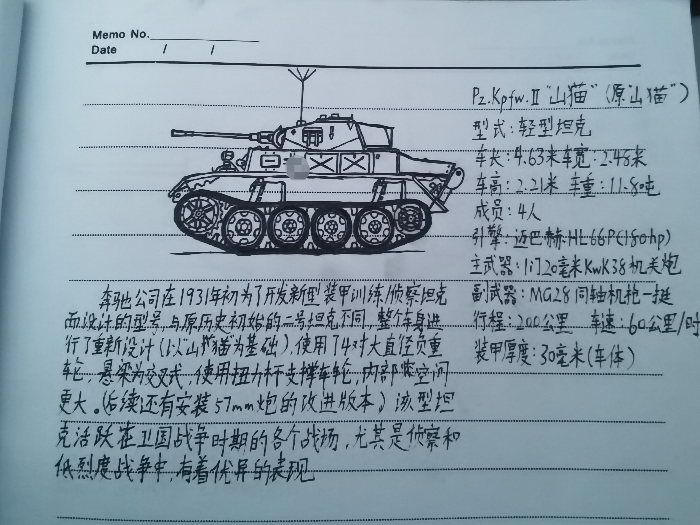 Memo No.
Date / /
Pz.Kpfw.II "山猫"(原"山猫")
型式:轻型坦克
车长:4.63米 车宽:2.48米
车高:2.21米 车重:11.8吨
成员:4人
引擎:迈巴赫HL66P(180hp)
主武器:1门20毫米KwK38机关炮
副武器:MG28同轴机枪一挺
行程:200公里 车速:60公里/时
装甲厚度:30毫米(车体)
奔驰公司在1931年初为了开发新型装甲训练/侦察坦克
而设计的型号,与原历史初始的二号坦克不同,整个车身进
行了重新设计(以"山猫"为基础),使用了4对大直径负重
轮,悬架为交叉式,使用扭力杆支撑车轮,内部空间
更大。(后续还有安装57mm炮的改进版本)该型坦
克活跃在卫国战争时期的各个战场,尤其是侦察和
低烈度战争中,有着优异的表现